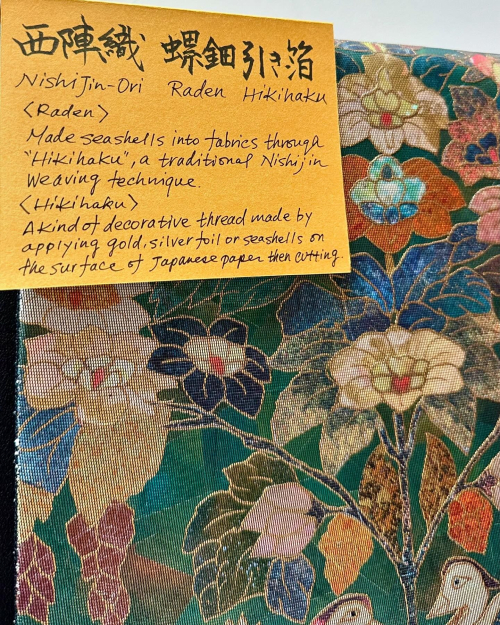 西陣織 螺鈿引き箔
Nishijin-Ori Raden Hikihaku
<Raden>
Made seashells into fabrics through
"Hikihaku", a traditional Nishijin
Weaving technique.
<Hikihaku>
A kind of decorative thread made by
applying gold, silver foil or seashells on
the surface of Japanese paper then cutting.